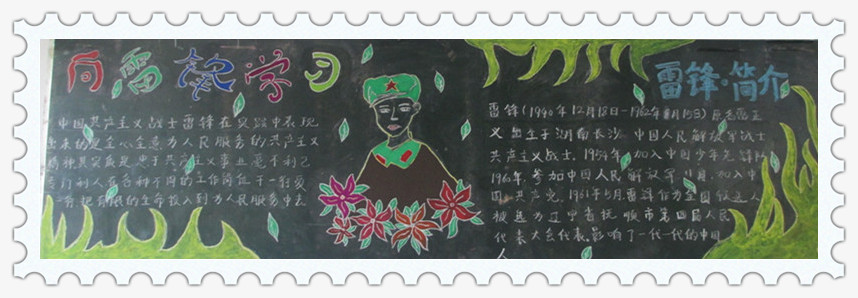 向雷锋学习
中国共产主义战士雷锋在实践中表现
出来的是全心全意为人民服务的共产主义
精神其实质是忠于共产主义事业毫不利己
专门利人在各种不同的工作岗位干一行爱
一行把有限的生命投入到为人民服务中去
雷锋·简介
雷锋(1940年12月18日-1962年8月15日)原名雷正
义出生于湖南长沙中国人民解放军战士
共产主义战士,1954年加入中国少年先锋队
1960年参加中国人民解放军11月加入中
国共产党.1961年5月雷锋作为全国候选人
被选为辽宁省抚顺市第四届人民
代表大会代表.影响了一代一代的中国
人